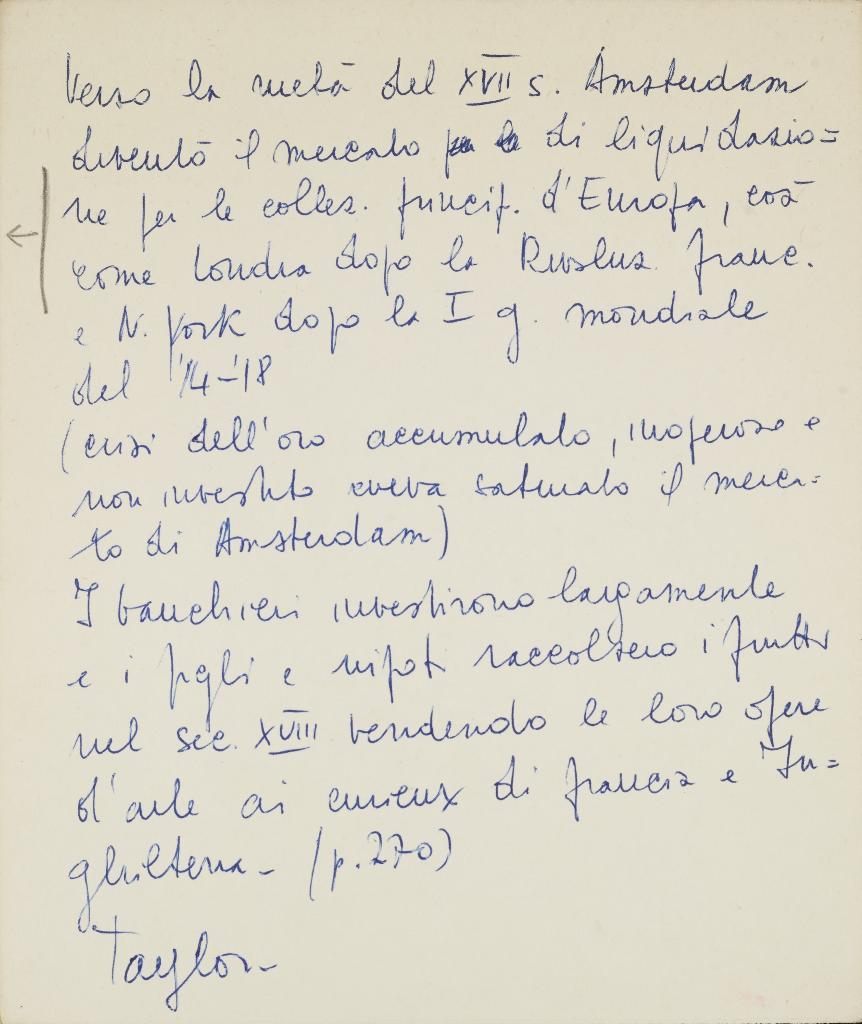 Verso la metà del XVII s. Amsterdam
diventò il mercato di liquidazio=
ne per le collez. princip. d'Europa, così
come Londra dopo la Rivoluz. franc.
e N. York dopo la I g. mondiale
del '14-'18
(crisi dell'oro accumulato, inoperoso e
non investito aveva saturato il merca-
to di Amsterdam)
I banchieri investirono largamente
e i figli e nipoti raccolsero i frutti
nel sec. XVIII vendendo le loro opere
d'arte ai curieux di francia e In=
ghilterra - (p. 270)
Taylor -